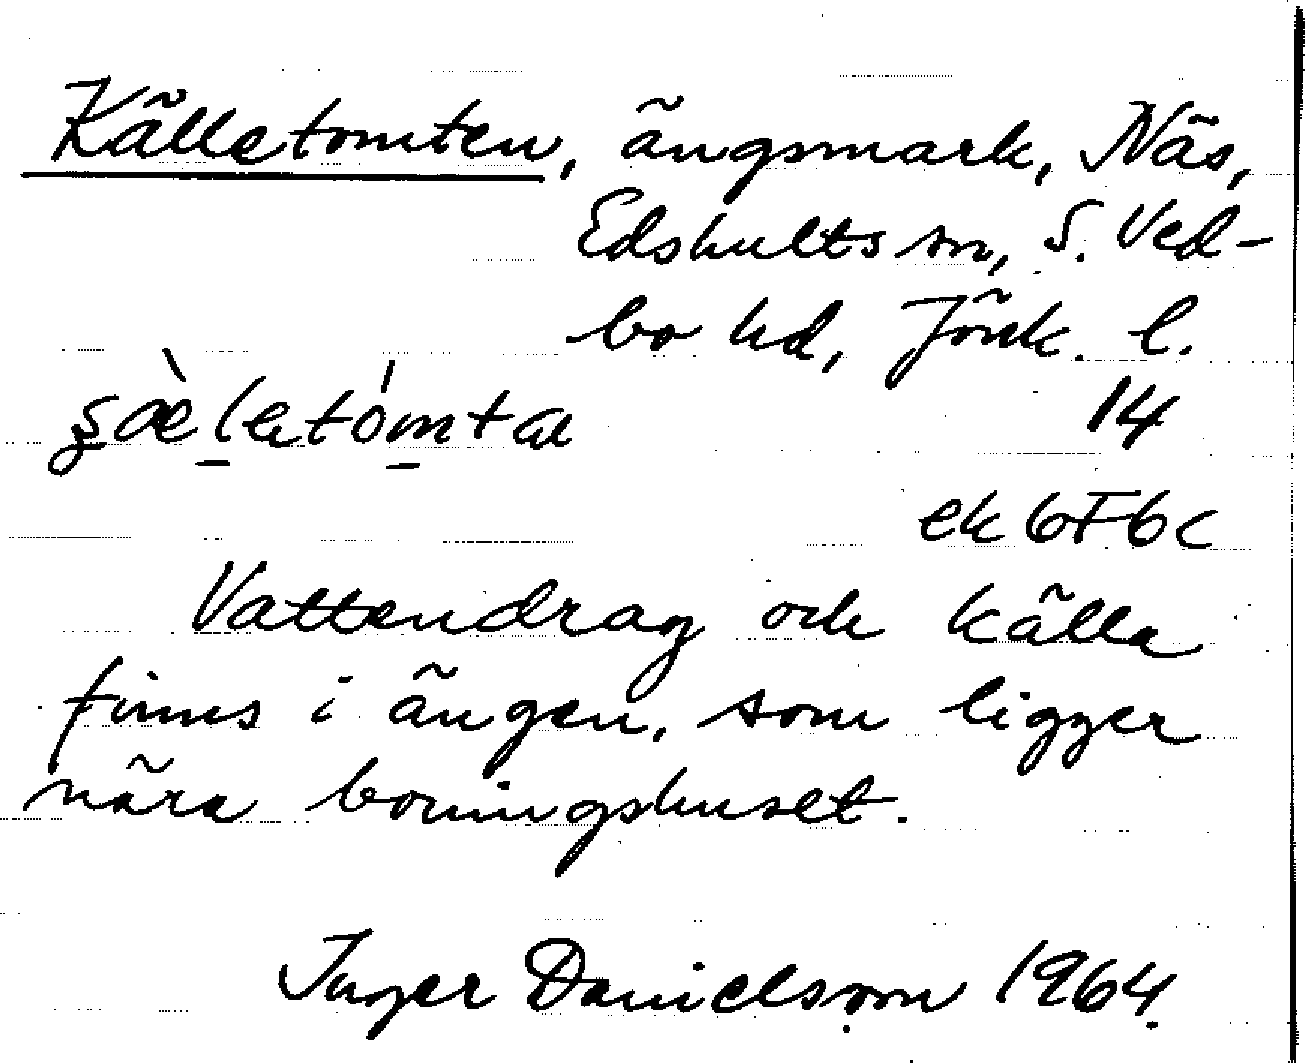 Källetomten, ängsmark, Näs,
Edshults sn, S. Ved-
bo hd, Jönk. l.
14
ek 6F6c
Vattendrag och källa
finns i ängen, som ligger
nära boningshuset.
Inger Danielsson 1964.